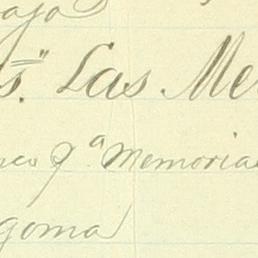 ajo
s." Las Me
sca g.ª Memoria
goma